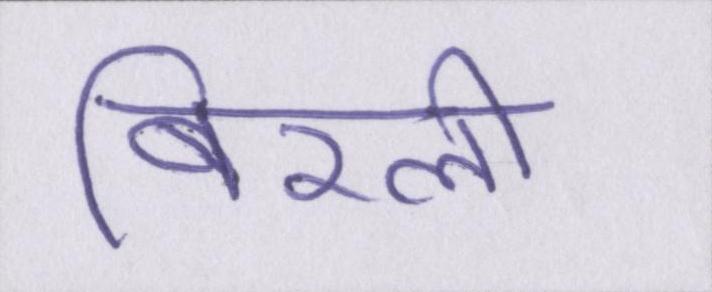 बिरली